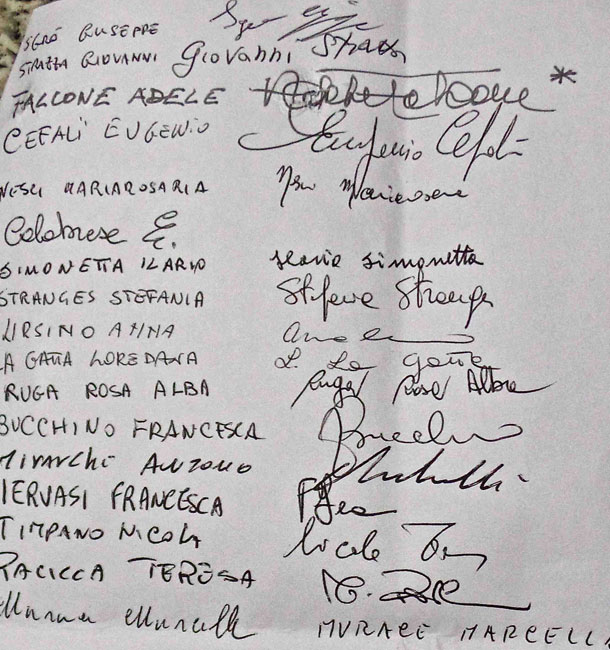 SGRÓ GIUSEPPE
STRAZZA GIOVANNI Giovanni Strazza
FALCONE ADELE *
CEFALÌ EUGENIO Eugenio Cefalì
NESCI MARIAROSARIA Mariarosaria
Calabrese E.
SIMONETTA ILARIO Ilario Simonetta
STRANGES STEFANIA Stefania Stranges
URSINO ANNA
LA GATTA LOREDANA L. La Gatta
RUGA ROSA ALBA Ruga Rosa Alba
BUCCHINO FRANCESCA Bucchino
MIRARCHI ANTONIO
IERVASI FRANCESCA
TIMPANO NICOLA Nicola
RACICCA TERESA
MURACE MARCELLA